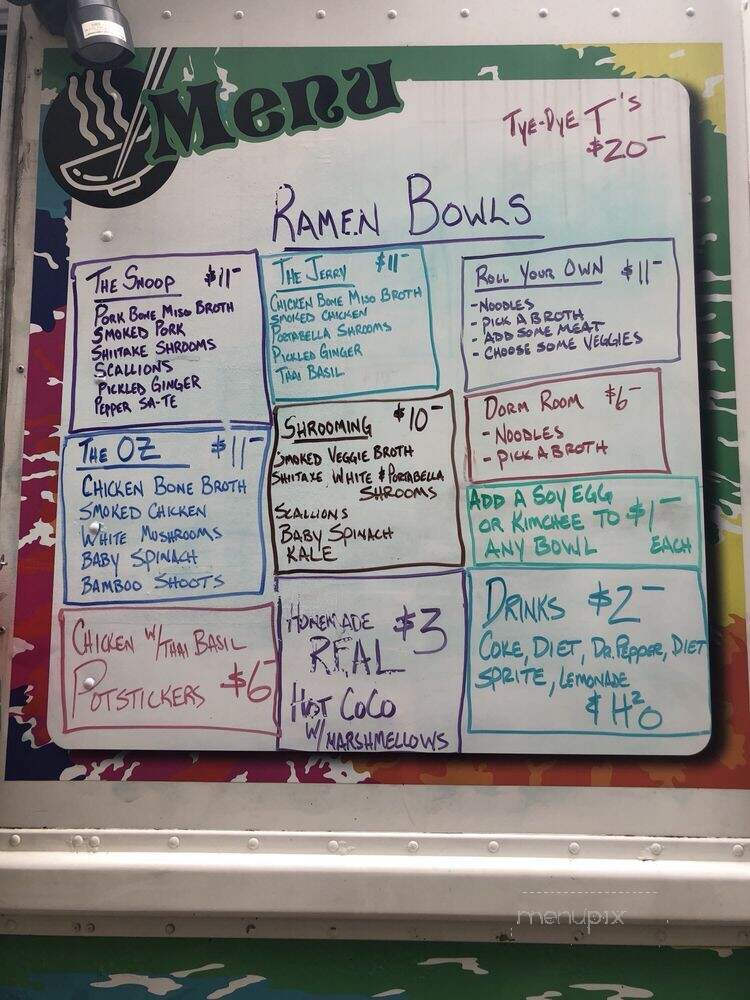 Menu
TYE-DYE T'S
$20-
RAMEN BOWLS
THE SNOOP $11-
PORK BONE MISO BROTH
SMOKED PORK
SHIITAKE SHROOMS
SCALLIONS
PICKLED GINGER
PEPPER SA-TE
THE JERRY $11-
CHICKEN BONE MISO BROTH
SMOKED CHICKEN
PORTABELLA SHROOMS
PICKLED GINGER
THAI BASIL
ROLL YOUR OWN $11-
-NOODLES
-PICK A BROTH
-ADD SOME MEAT
-CHOOSE SOME VEGGIES
THE OZ $11-
CHICKEN BONE BROTH
SMOKED CHICKEN
WHITE MUSHROOMS
BABY SPINACH
BAMBOO SHOOTS
SHROOMING $10-
SMOKED VEGGIE BROTH
SHIITAKE, WHITE & PORTABELLA
SHROOMS
SCALLIONS
BABY SPINACH
KALE
DORM ROOM $6-
-NOODLES
-PICK A BROTH
ADD A SOY EGG
OR KIMCHEE TO $1-
ANY BOWL EACH
CHICKEN W/THAI BASIL
POTSTICKERS $6-
HOMEMADE $3
REAL
HOT COCO
W/MARSHMELLOWS
DRINKS $2-
COKE, DIET, DR. PEPPER, DIET
SPRITE, LEMONADE
& H²O
menupix